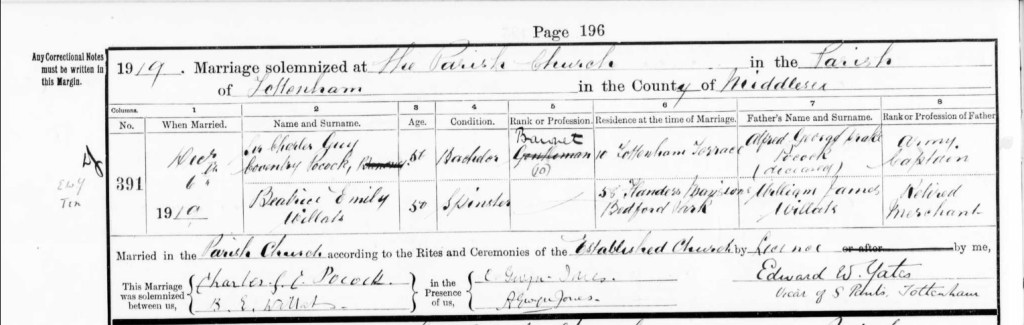 Page 196
Any Correctional Notes
must be written in
this Margin.
1919. Marriage solemnized at the Parish Church in the Parish
of Tottenham in the County of Middlesex
Columns. 1 2 3 4 5 6 7 8
No. When Married. Name and Surname. Age. Condition. Rank or Profession. Residence at the time of Marriage. Father's Name and Surname. Rank or Profession of Father
391
Decr 6th 1919
Sir Charles Guy
Coventry Pocock, 
Bachelor
Baronet
Gentleman
10 Tottenham Terrace
Alfred George Drake
Pocock
(deceased)
Army
Captain
Beatrice Emily
Willats
50
Spinster
58 Flanders
Bedford Park
William James
Willats
Retired
Merchant
Married in the Parish Church according to the Rites and Ceremonies of the Established Church by Licence or after by me,
This Marriage
was solemnized
between us,
Charles G. C. Pocock
B. E. Willats
in the
Presence
of us,
Gwyn Jones.
A Gwyn Jones.
Edward W. Yates
Vicar of S Pauls, Tottenham